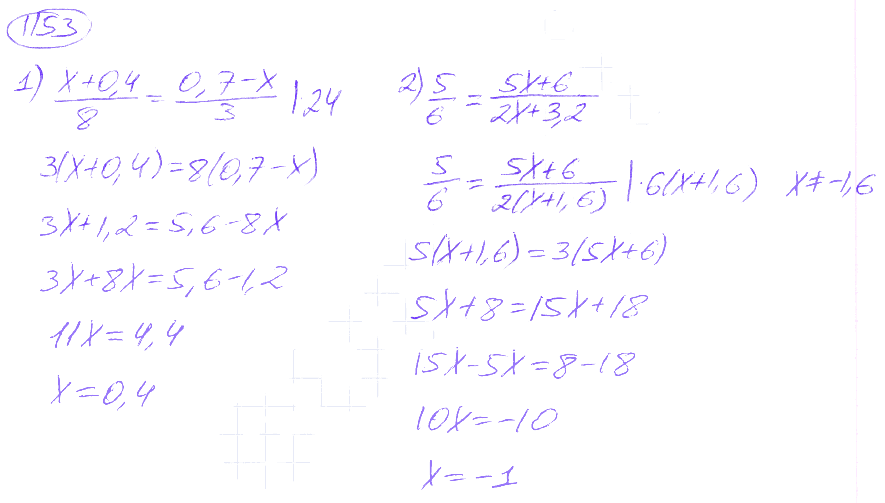 1153
1) x+0,4/8 = 0,7-x/3 |·24
3(x+0,4)=8(0,7-x)
3x+1,2=5,6-8x
3x+8x=5,6-1,2
11x=4,4
x=0,4
2) 5/6 = 5x+6/2x+3,2
5/6 = 5x+6/2(x+1,6) |·6(x+1,6) x≠-1,6
5(x+1,6)=3(5x+6)
5x+8=15x+18
15x-5x=8-18
10x=-10
x=-1